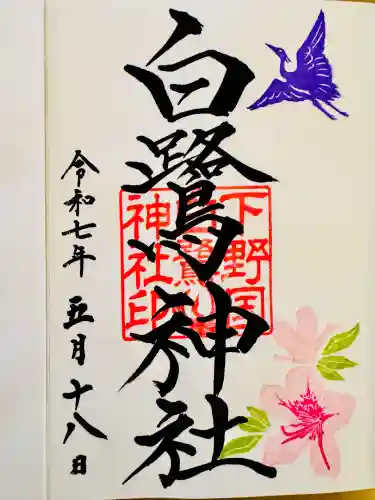 白鷺神社
令和七年 五月十八日
下野国
白鷺
神社印